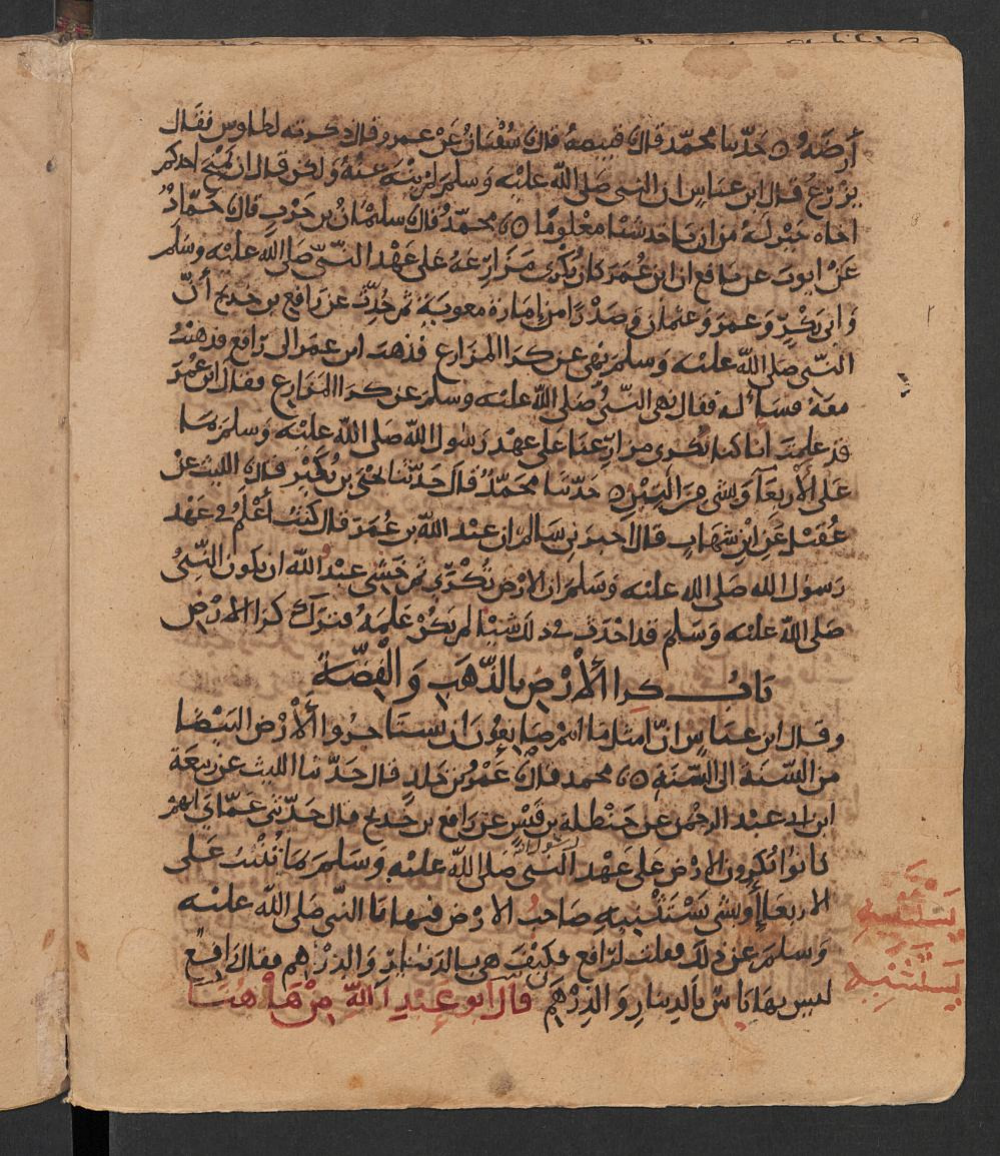 أرضه ۞ حدثنا محمد قال قبيصة قال سفيان عن عمرو قال ذكرته لطاوس فقال
يزرع قال ابن عباس ان النبي صلى الله عليه وسلم لم ينه عنه ولكن قال ان يمنح احدكم
اخاه خير له من ان ياخذ شيئا معلوما ۞ محمد قال سليمان بن حرب قال حماد
عن ايوب عن نافع ان ابن عمر كان يكري مزارعه على عهد النبي صلى الله عليه وسلم
وابي بكر وعمر وعثمان وصدرا من إمارة معوية ثم حدث عن رافع بن خديج أن
النبي صلى الله عليه وسلم نهى عن كرا المزارع فذهب ابن عمر الى رافع فذهبت
معه فسأله فقال نهى النبي صلى الله عليه وسلم عن كرا المزارع فقال ابن عمر
قد علمت انا كنا نكري مزارعنا على عهد رسول الله صلى الله عليه وسلم بما
على الأربعآ وبشي من التبن ۞ حدثنا محمد قال حدثنا يحيى بن بكير قال الليث عن
عقيل عن ابن شهاب قال اخبرني سالم ان عبد الله بن عمر قال كنت أعلم في عهد
رسول الله صلى الله عليه وسلم ان الارض تكرى ثم خشي عبد الله ان يكون النبي
صلى الله عليه وسلم قد احدث في ذلك شيئا لم يكن علمه فترك كرا الارض
باب كرا الأرض بالذهب والفضة
وقال ابن عباس ان امثل ما انتم صانعون ان تستاجروا الأرض البيضا
من السنة الى السنة ۞ محمد قال عمرو بن خلد قال حدثنا الليث عن ربيعة
ابن ابي عبد الرحمن عن حنظلة بن قيس عن رافع بن خديج قال حدثني عماي انهم
كانوا يكرون الارض على عهد النبي صلى الله عليه وسلم بما ينبت على
الاربعا أو بشي يستثنيه صاحب الارض فنهانا النبي صلى الله عليه
وسلم عن ذلك فقلت لرافع فكيف هي بالدنانير والدراهم فقال رافع
ليس بها باس بالدينار والدرهم قال ابو عبد الله من هاهنا